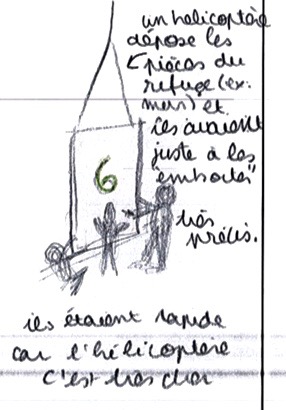 un hélicoptère
dépose les
pièces du
refuge (ex:
murs) et
ils avaient
juste à les
"emboiter"
6
très
précis.
ils étaient rapide
car l'hélicoptère
c'est très cher